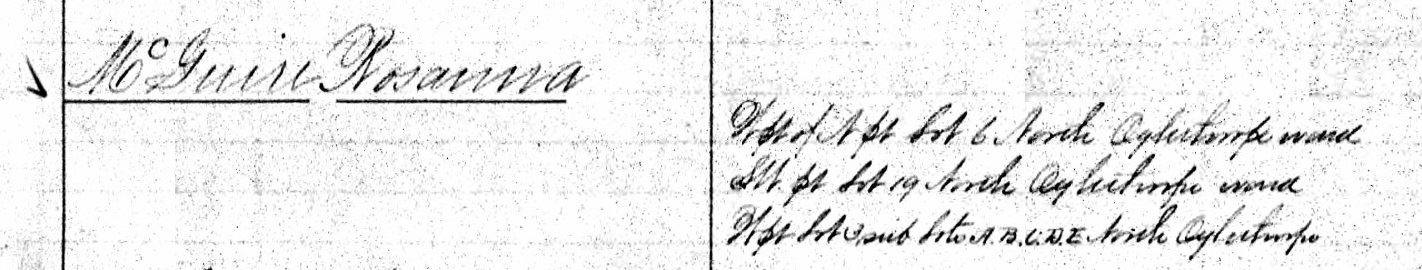 McGuire Rosanna
W pt of N pt Lot 6 North Oglethorpe ward
SW. pt Lot 19 North Oglethorpe ward
W pt Lot 3 sub Lots A.B.C.D.E North Oglethorpe